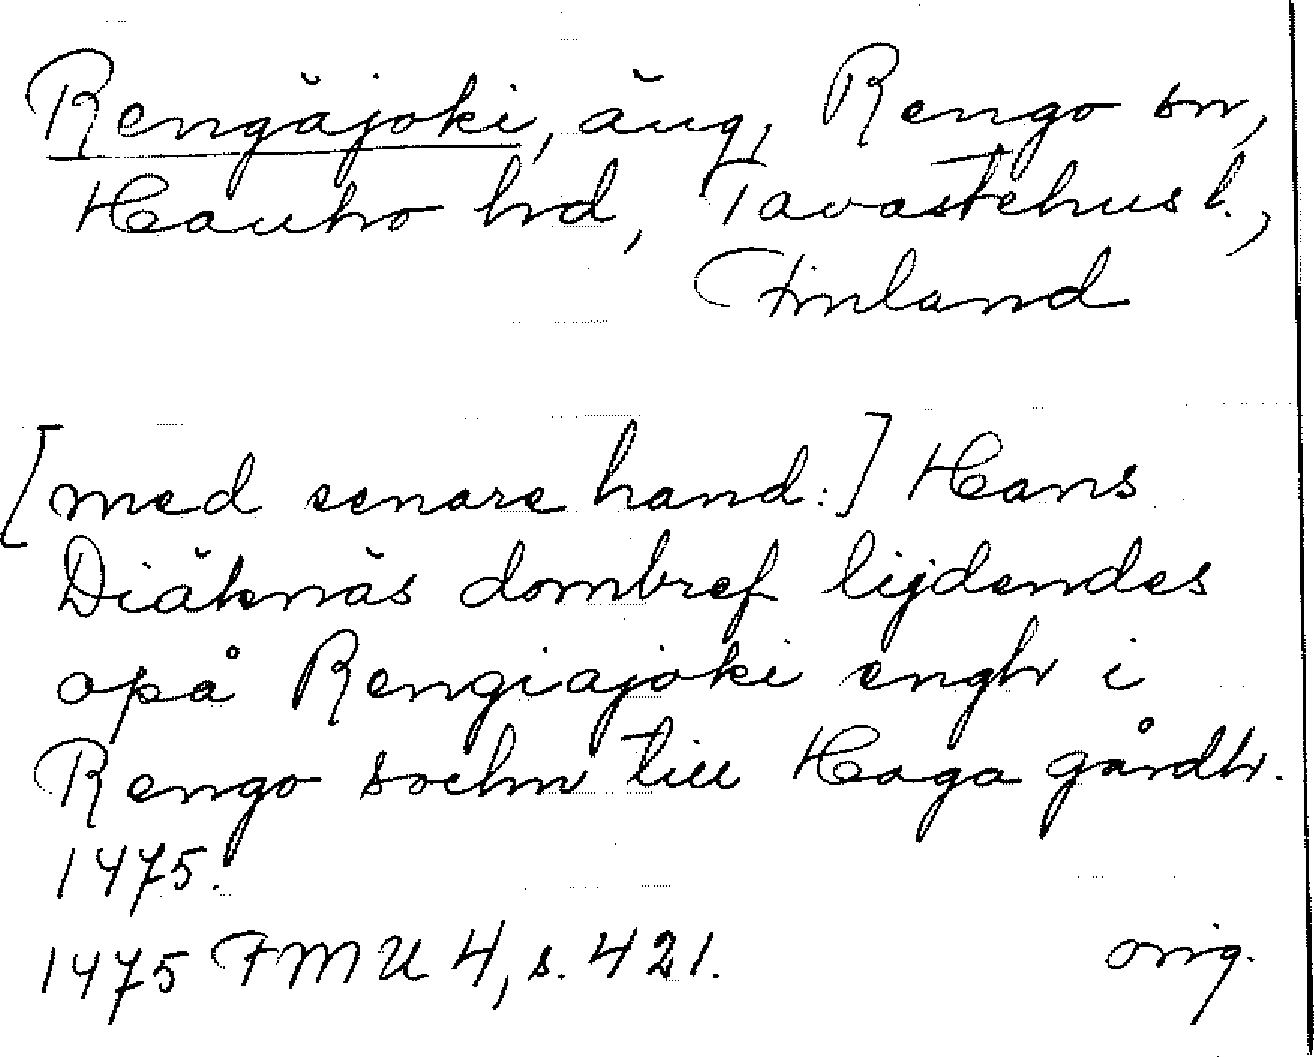 Rengäjoki, äng, Rengo sn,
Hauho hd, Tavastehus l.,
Finland
[med senare hand:] Hans
Diäknäs dombref lijdendes
opå Rengiajoki engh i
Rengo sochn till Haga gårdh.
1475.
1475 FMU 4, s. 421. orig.